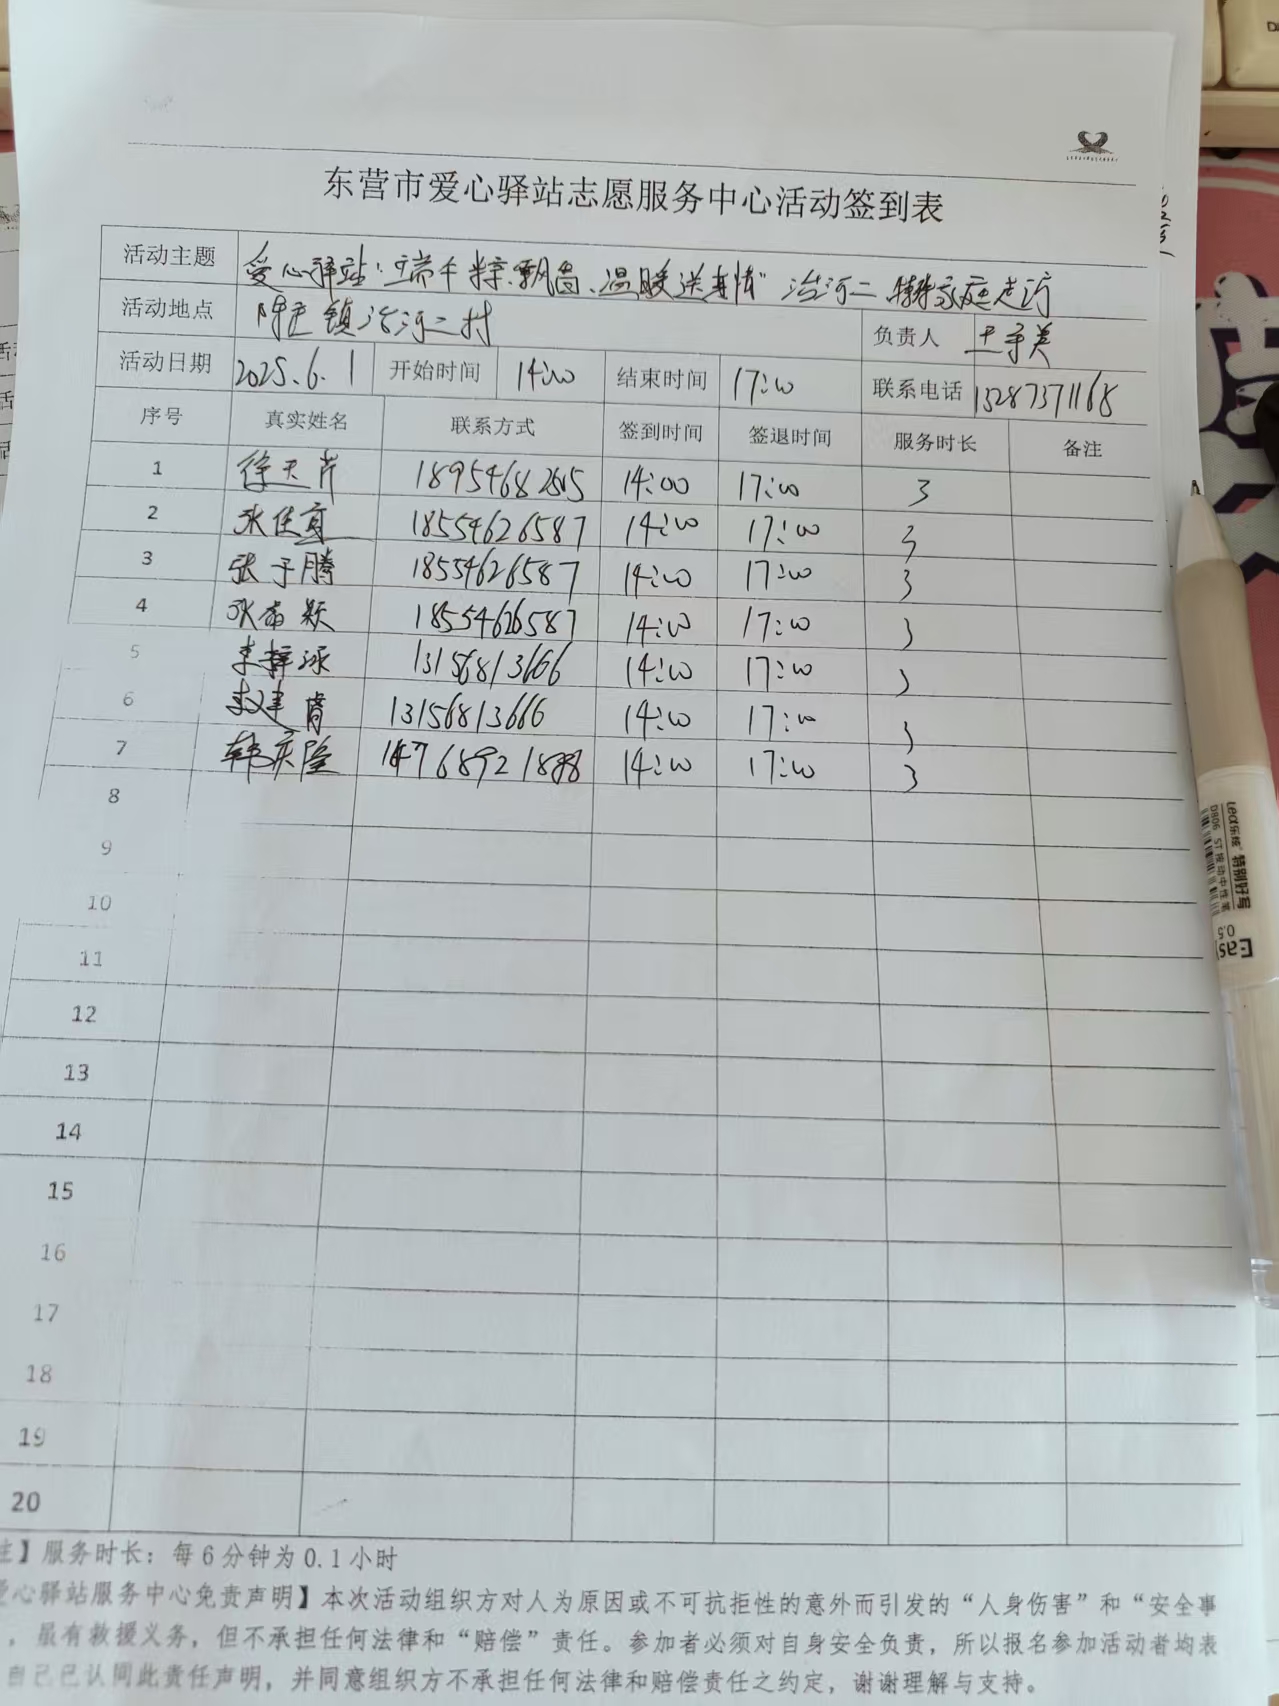 东营市爱心驿站志愿服务中心活动签到表
活动主题 爱心驿站"端午粽飘香、温暖送真情"沾河二 特殊家庭走访
活动地点 陈庄镇沾河二村 负责人 王守美
活动日期 2025.6.1 开始时间 14:00 结束时间 17:00 联系电话 13287371168
序号 真实姓名 联系方式 签到时间 签退时间 服务时长 备注
1 徐天芹 18954682515 14:00 17:00 3
2 张佳宜 18554626587 14:00 17:00 3
3 张子腾 18554626587 14:00 17:00 3
4 张 颖 18554626587 14:00 17:00 3
5 李梓涵 13156813666 14:00 17:00 3
6 李建 13156813666 14:00 17:00 3
7 韩庆隆 14768921888 14:00 17:00 3
8
9
10
11
12
13
14
15
16
17
18
19
20
注】服务时长：每6分钟为0.1小时
爱心驿站服务中心免责声明】本次活动组织方对人为原因或不可抗拒性的意外而引发的“人身伤害”和“安全事
，虽有救援义务，但不承担任何法律和“赔偿”责任。参加者必须对自身安全负责，所以报名参加活动者均表
自己已认同此责任声明，并同意组织方不承担任何法律和赔偿责任之约定，谢谢理解与支持。
Lea乐炫 特别好写
D806 ST按动中性笔
Easy
0.5